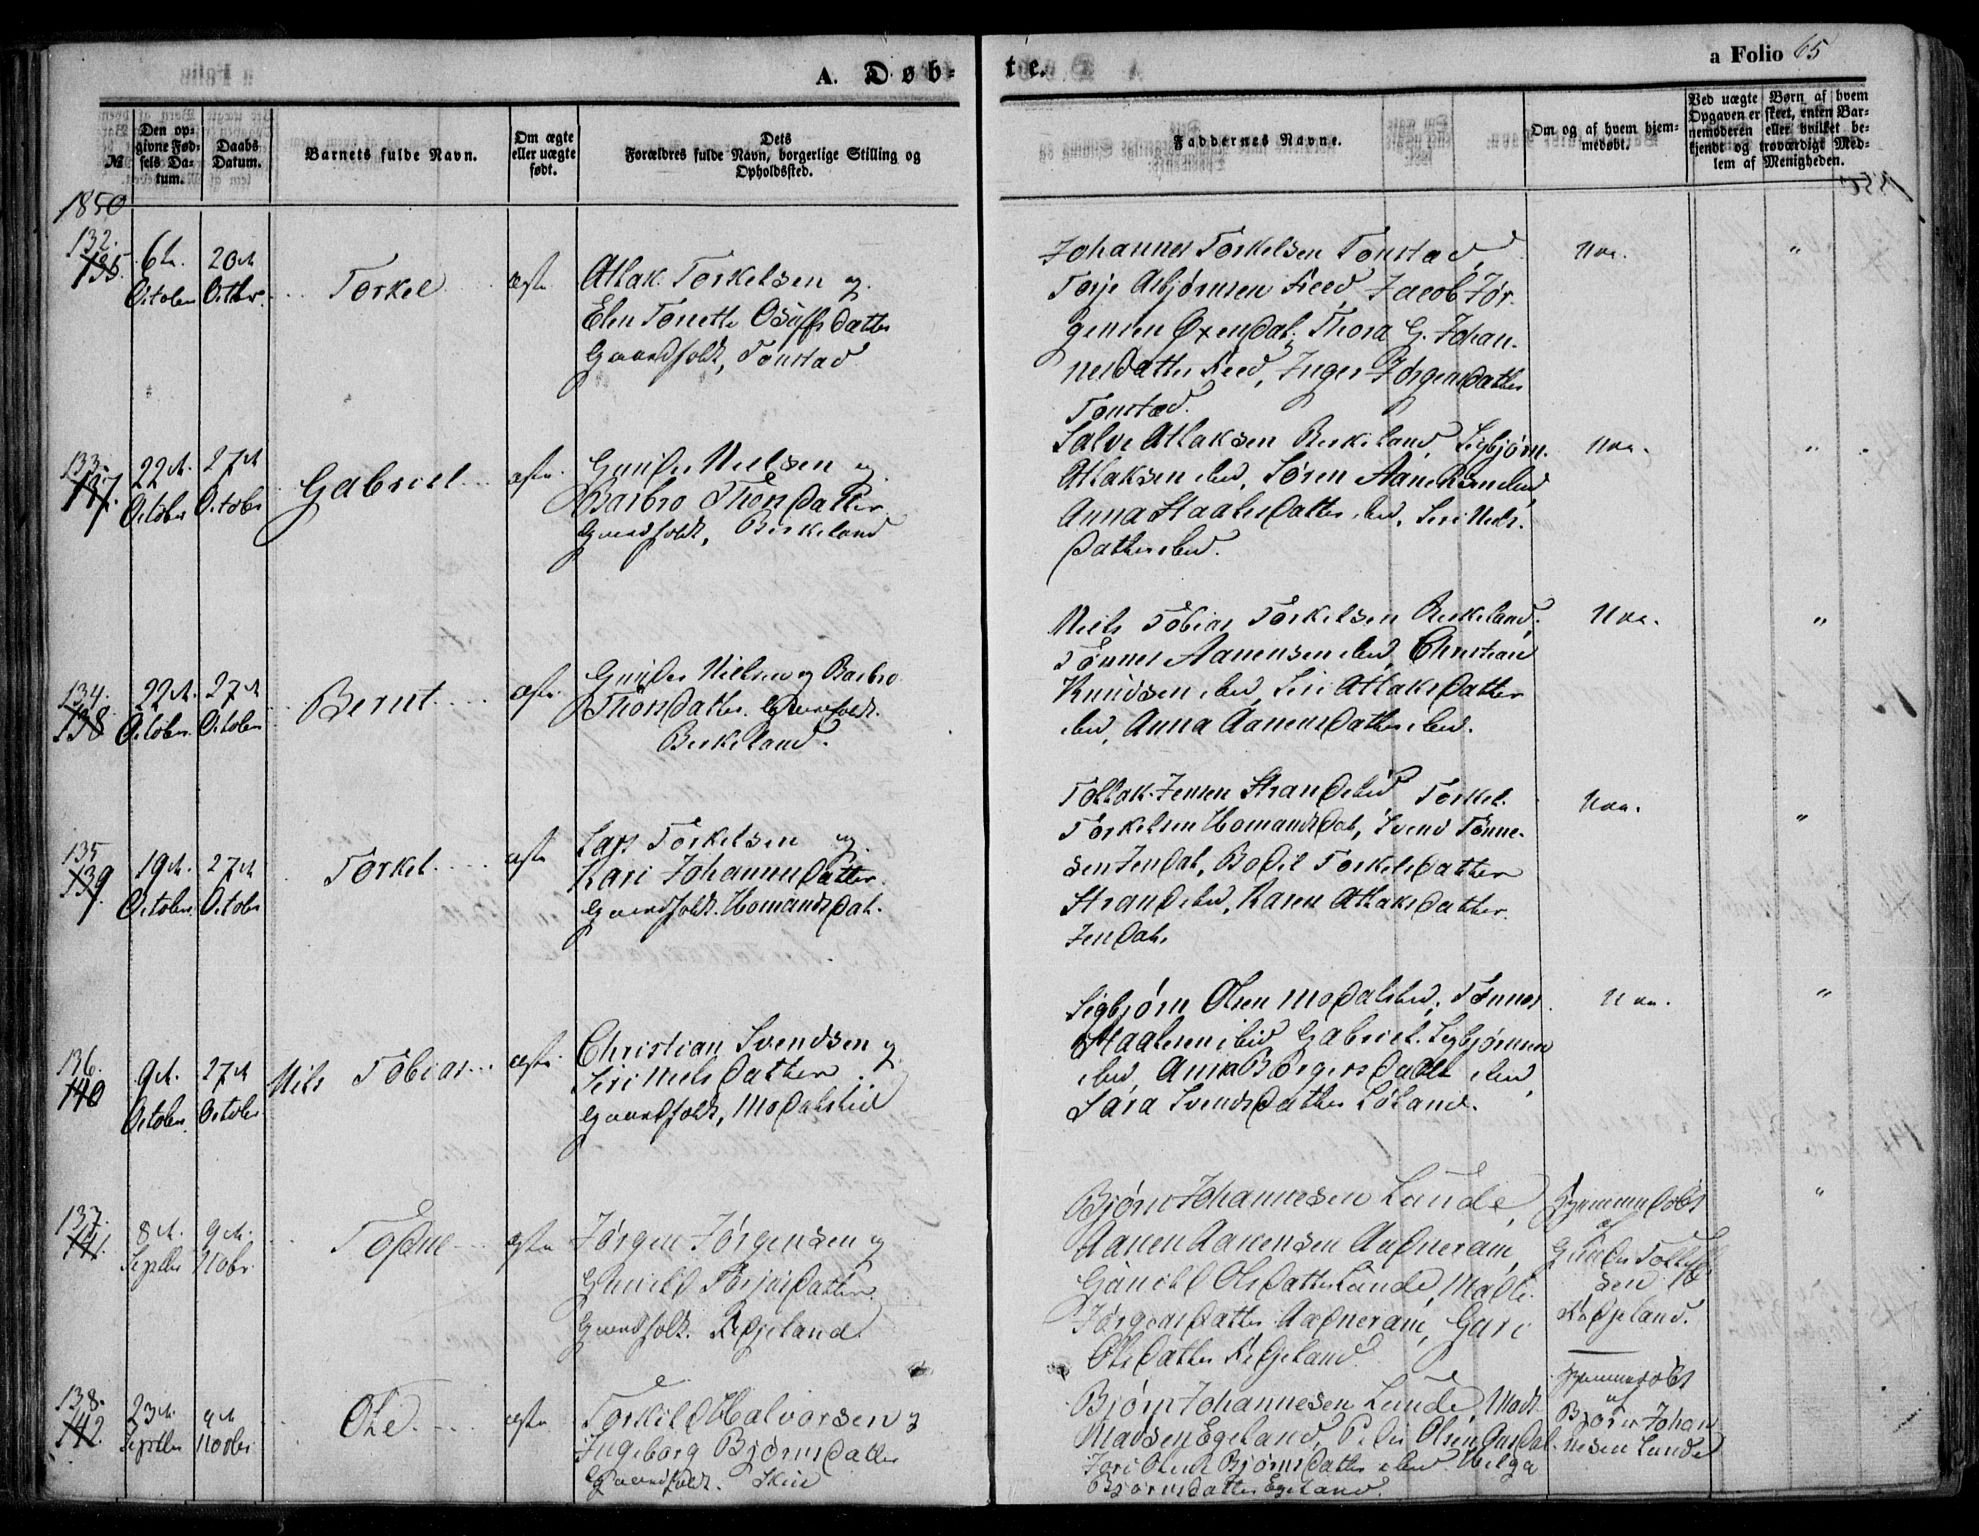 A. Døb-
te.
a Folio 65
№
Den op-
givne Fød-
sels Da-
tum.
Daabs
Datum.
Barnets fulde Navn.
Om ægte
eller uægte
født.
Dets
Forældres fulde Navn, borgerlige Stilling og
Opholdssted.
Faddernes Navne.
Om og af hvem hjem-
medøbt.
Ved uægte Børn af hvem
Opgaven er skeet, enten Bar-
nemoderen eller hvilket be-
kjendt og troværdigt Med-
lem af Menigheden.
1850
132.
135.
6te
October
20de
Octbr.
Torkel
ægte
Atlak Torkelsen og
Elen Tonette Osufsdatter
Gaardfolk, Tonstad
Johannes Torkelsen Tonstad,
Terje Asbjørnsen Feed, Jacob Jør-
gensen Øxendal, Thora G. Johan-
nesdatter Feed, Inger Jørgensdatter
Tonstad.
Nei.
"
133.
137.
22de
October
27de
October
Gabriel
ægte
Gunder Nielsen og
Barbro Thorsdatter
Gaardfolk, Birkeland
Salve Atlaksen Birkeland, Sigbjørn
Atlaksen ibid, Søren Aanensen ibid,
Anna Staalesdatter ibid, Siri Niels-
datter ibid.
Nei.
"
134.
138
22de
October
27de
October
Bernt
ægte
Gunder Nielsen og Barbro
Thorsdatter. Gaardfolk.
Birkeland.
Niels Tobias Torkelsen Birkeland,
Tønnes Aanensen ibid, Christian
Knudsen ibid, Siri Atlaksdatter
ibid, Anna Aanensdatter ibid.
Nei.
"
135
139
19de
October
27de
October
Torkel
ægte
Lars Torkelsen og
Kari Johannesdatter
Gaardfolk. Homandsdal.
Tollak Jensen Strandebed, Torkel
Torkelsen Homandsdal, Svend Tønne-
sen Jendal, Bodil Torkelsdatter
Strandebed, Karen Atlaksdatter
Jendal.
Nei.
"
136.
140
9de
October
27de
October
Niels Tobias
ægte
Christian Svendsen og
Siri Nielsdatter
Gaardfolk, Modalsliid
Sigbjørn Olsen Modalsliid, Tønnes
Staalesen ibid Gabriel Sigbjørnsen
ibid, Anna Børgersdatter ibid,
Sara Svendsdatter Løland.
Nei.
"
137.
141.
8de
Septbr
9de
Novbr
Todne
ægte
Jørgen Jørgensen og
Gunild Terjesdatter
Gaardfolk. Kedjeland.
Bjørn Johannesen Lunde,
Aanen Aanensen Aadneram,
Gunild Olsdatter Lunde, Malli
Jørgensdatter Aadneram, Guri
Olsdatter Kedjeland.
Hjemmedøbt
af
Gunder Tollef-
sen
Kedjeland.
"
138.
142.
23de
Septbr
9de
Novbr
Ole
ægte
Torkild Halvorsen og
Ingeborg Bjørnsdatter
Gaardfolk. Skiie
Bjørn Johannesen Lunde, Mads
Madsen Egeland, Peder Olsen Ousdal
Bjørnsdatter ibid Helga
Bjørnsdatter Egeland.
Hjemmedøbt
af
Bjørn Johan-
nesen Lunde